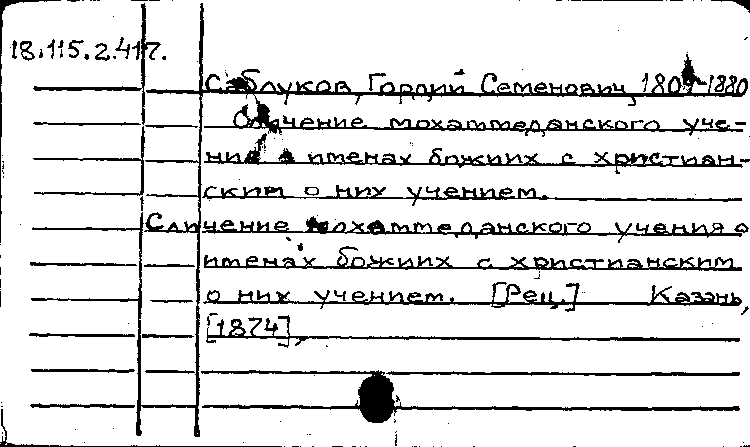 18.115.2.417.
Саблуков, Гордий Семенович, 1804-1880
Сличение мохаммеданского уче-
ния о именах божиих с христиан-
ским о них учением.
Сличение мохаммеданского учения о
именах божиих с христианским
о них учением. [Рец.] Казань,
[1874],